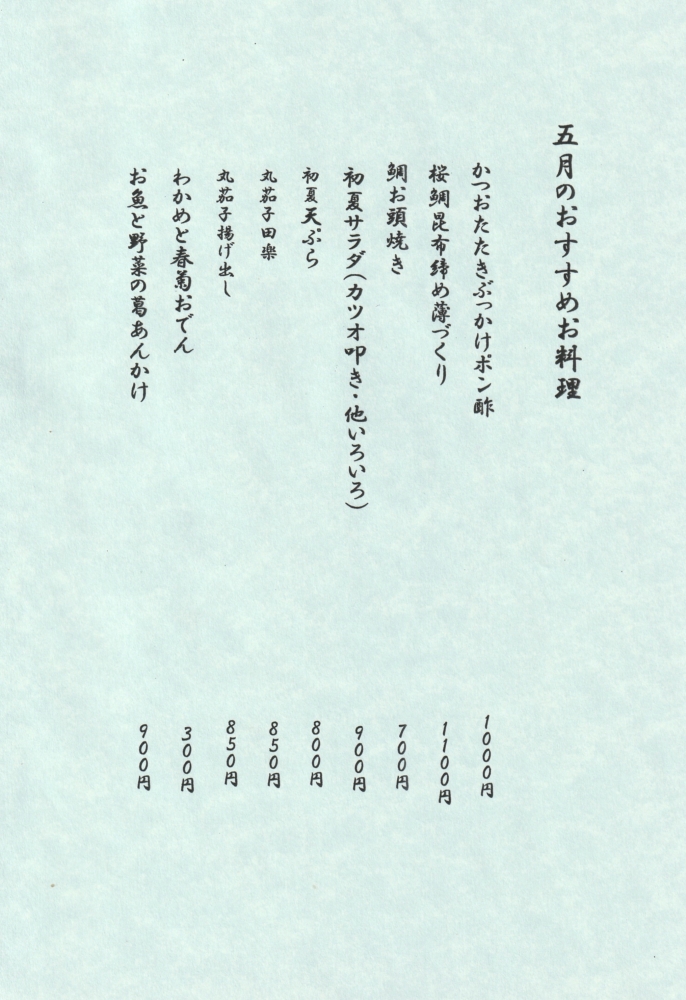 五月のおすすめお料理
かつおたたきぶっかけポン酢 1000円
桜鯛昆布締め薄づくり 1100円
鯛お頭焼き 700円
初夏サラダ(カツオ叩き・他いろいろ) 900円
初夏天ぷら 800円
丸茄子田楽 850円
丸茄子揚げ出し 850円
わかめと春菊おでん 300円
お魚と野菜の葛あんかけ 900円